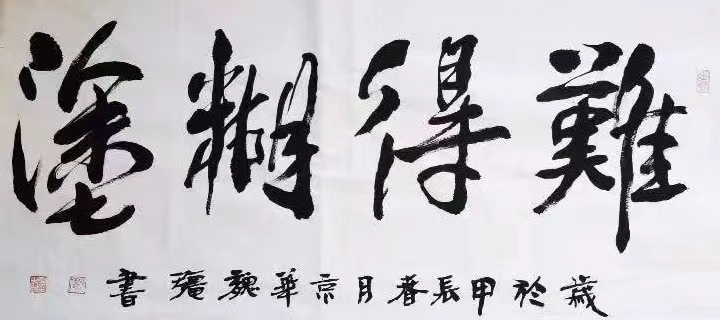 難得糊塗
歲於甲辰春月京華魏彊書